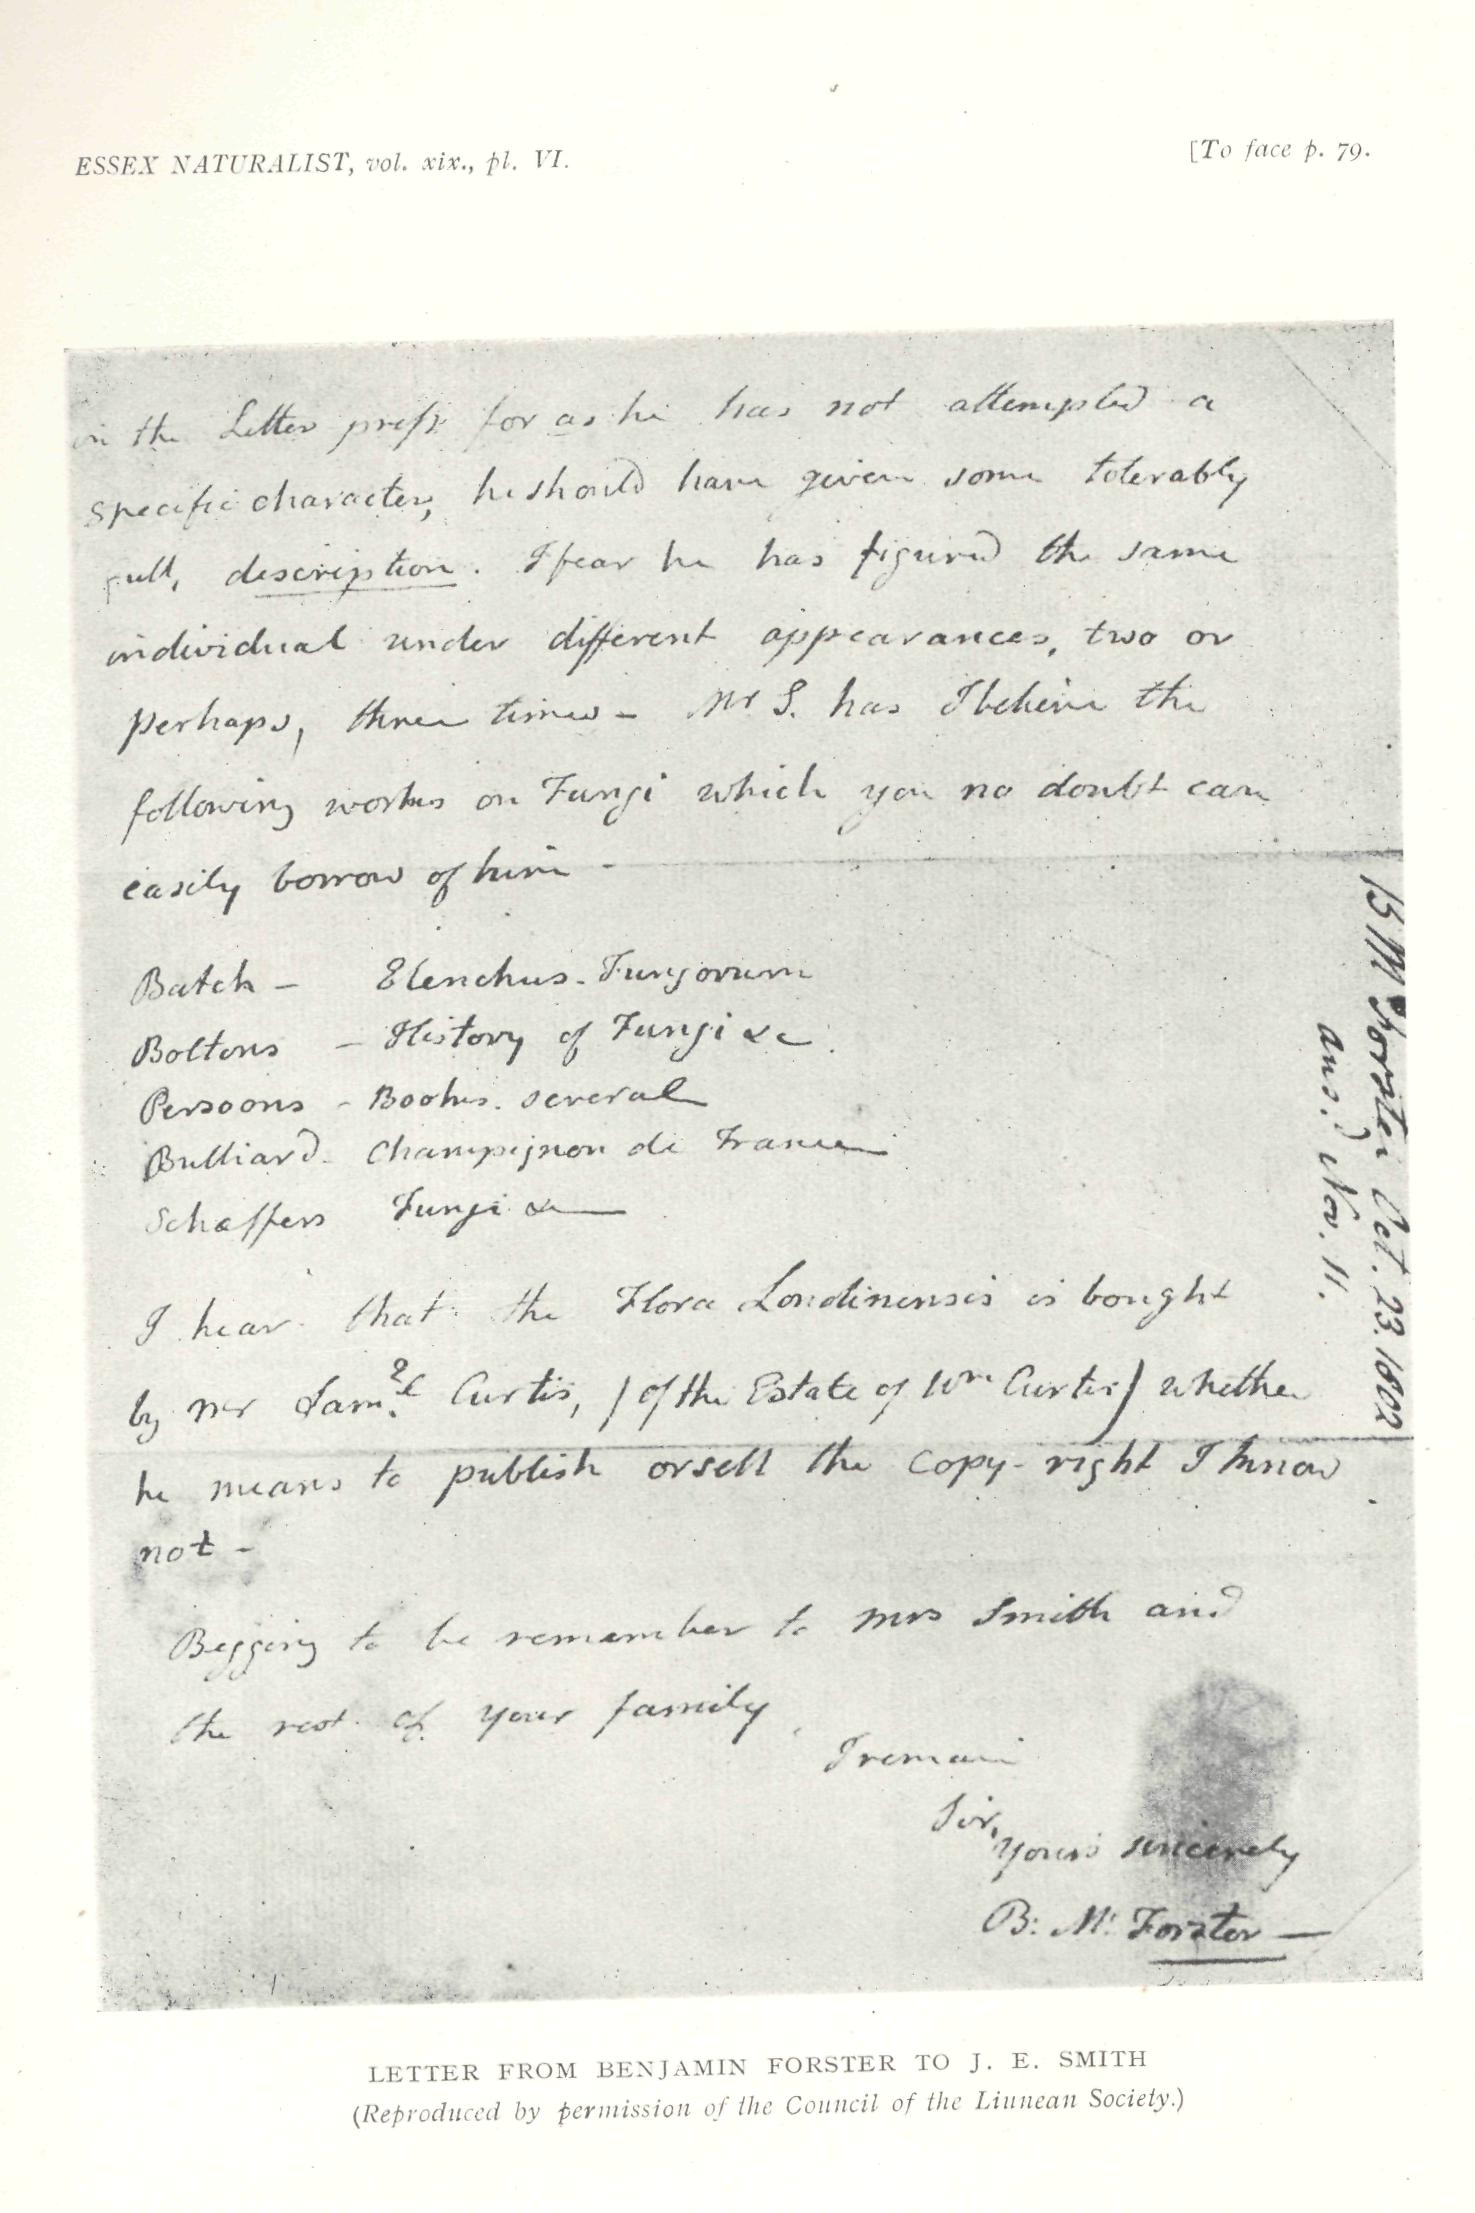 ESSEX NATURALIST, vol. xix., pl. VI.
[To face p. 79.
in the Letter press for as he has not attempted a
specific character, he should have given some tolerably
full, description. I fear he has figured the same
individual under different appearances, two or
perhaps, three times - Mr S. has I believe the
following works on Fungi which you no doubt can
easily borrow of him -
Batch - Elenchus. Fungorum
Boltons - History of Fungi &c
Persoons - Books. several
Bulliard - Champignon de France
Schæffers Fungi &c
I hear that the Flora Londinensis is bought
by Mr Saml. Curtis, (of the Estate of Wm Curtis) whether
he means to publish or sell the copy-right I know
not -
Begging to be remember to Mrs Smith and
the rest of your family
I remain
Sir,
Yours sincerely
B: M: Forster —
B M Forster Oct. 23. 1802
ans.d Nov. 11.
LETTER FROM BENJAMIN FORSTER TO J. E. SMITH
(Reproduced by permission of the Council of the Linnean Society.)